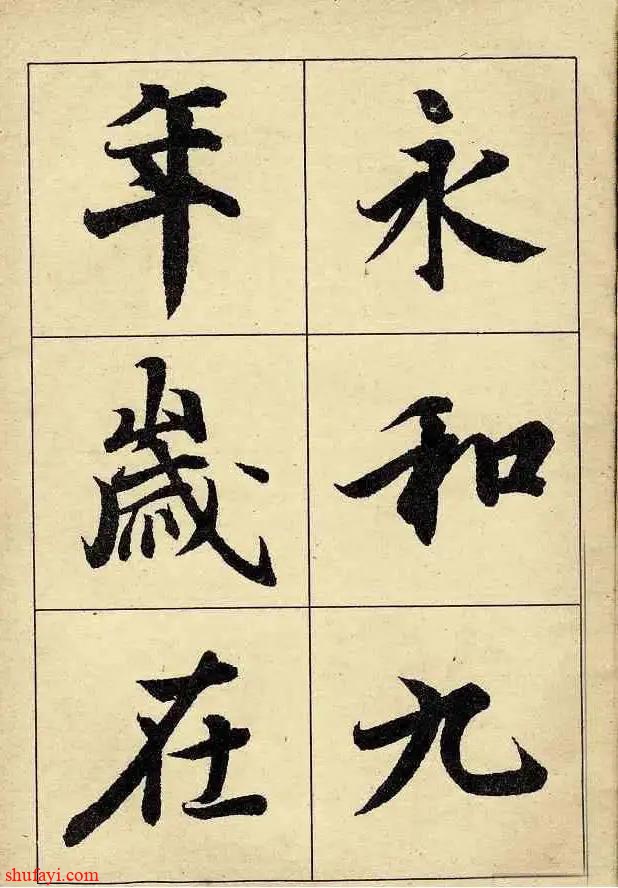 永和九
年歲在
shufayi.com